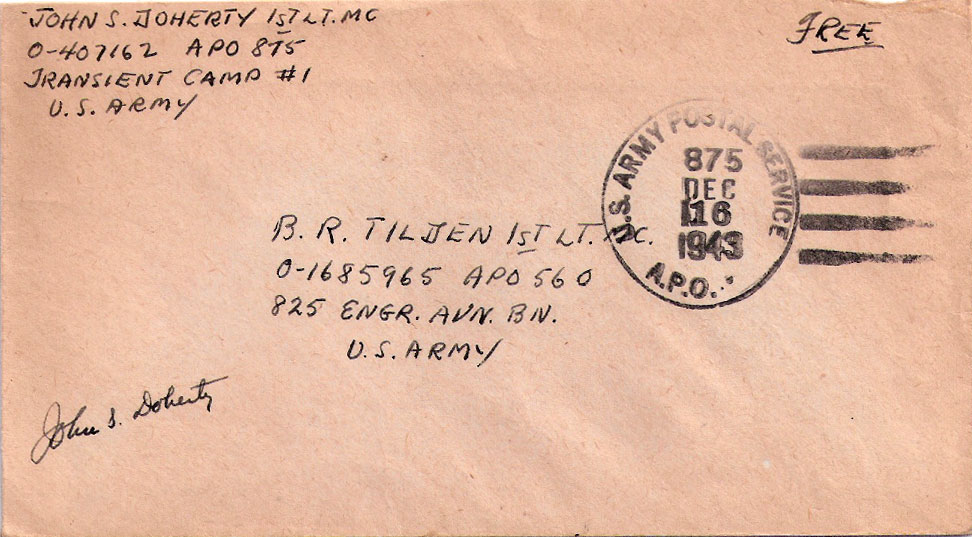 JOHN S. DOHERTY 1ST LT. MC
O-407162 APO 875
TRANSIENT CAMP #1
U.S. ARMY
FREE
U.S. ARMY POSTAL SERVICE
875
DEC
16
1943
A.P.O.
B. R. TILDEN 1ST LT. MC.
O-1685965 APO 560
825 ENGR. AVN. BN.
U.S. ARMY
John S. Doherty